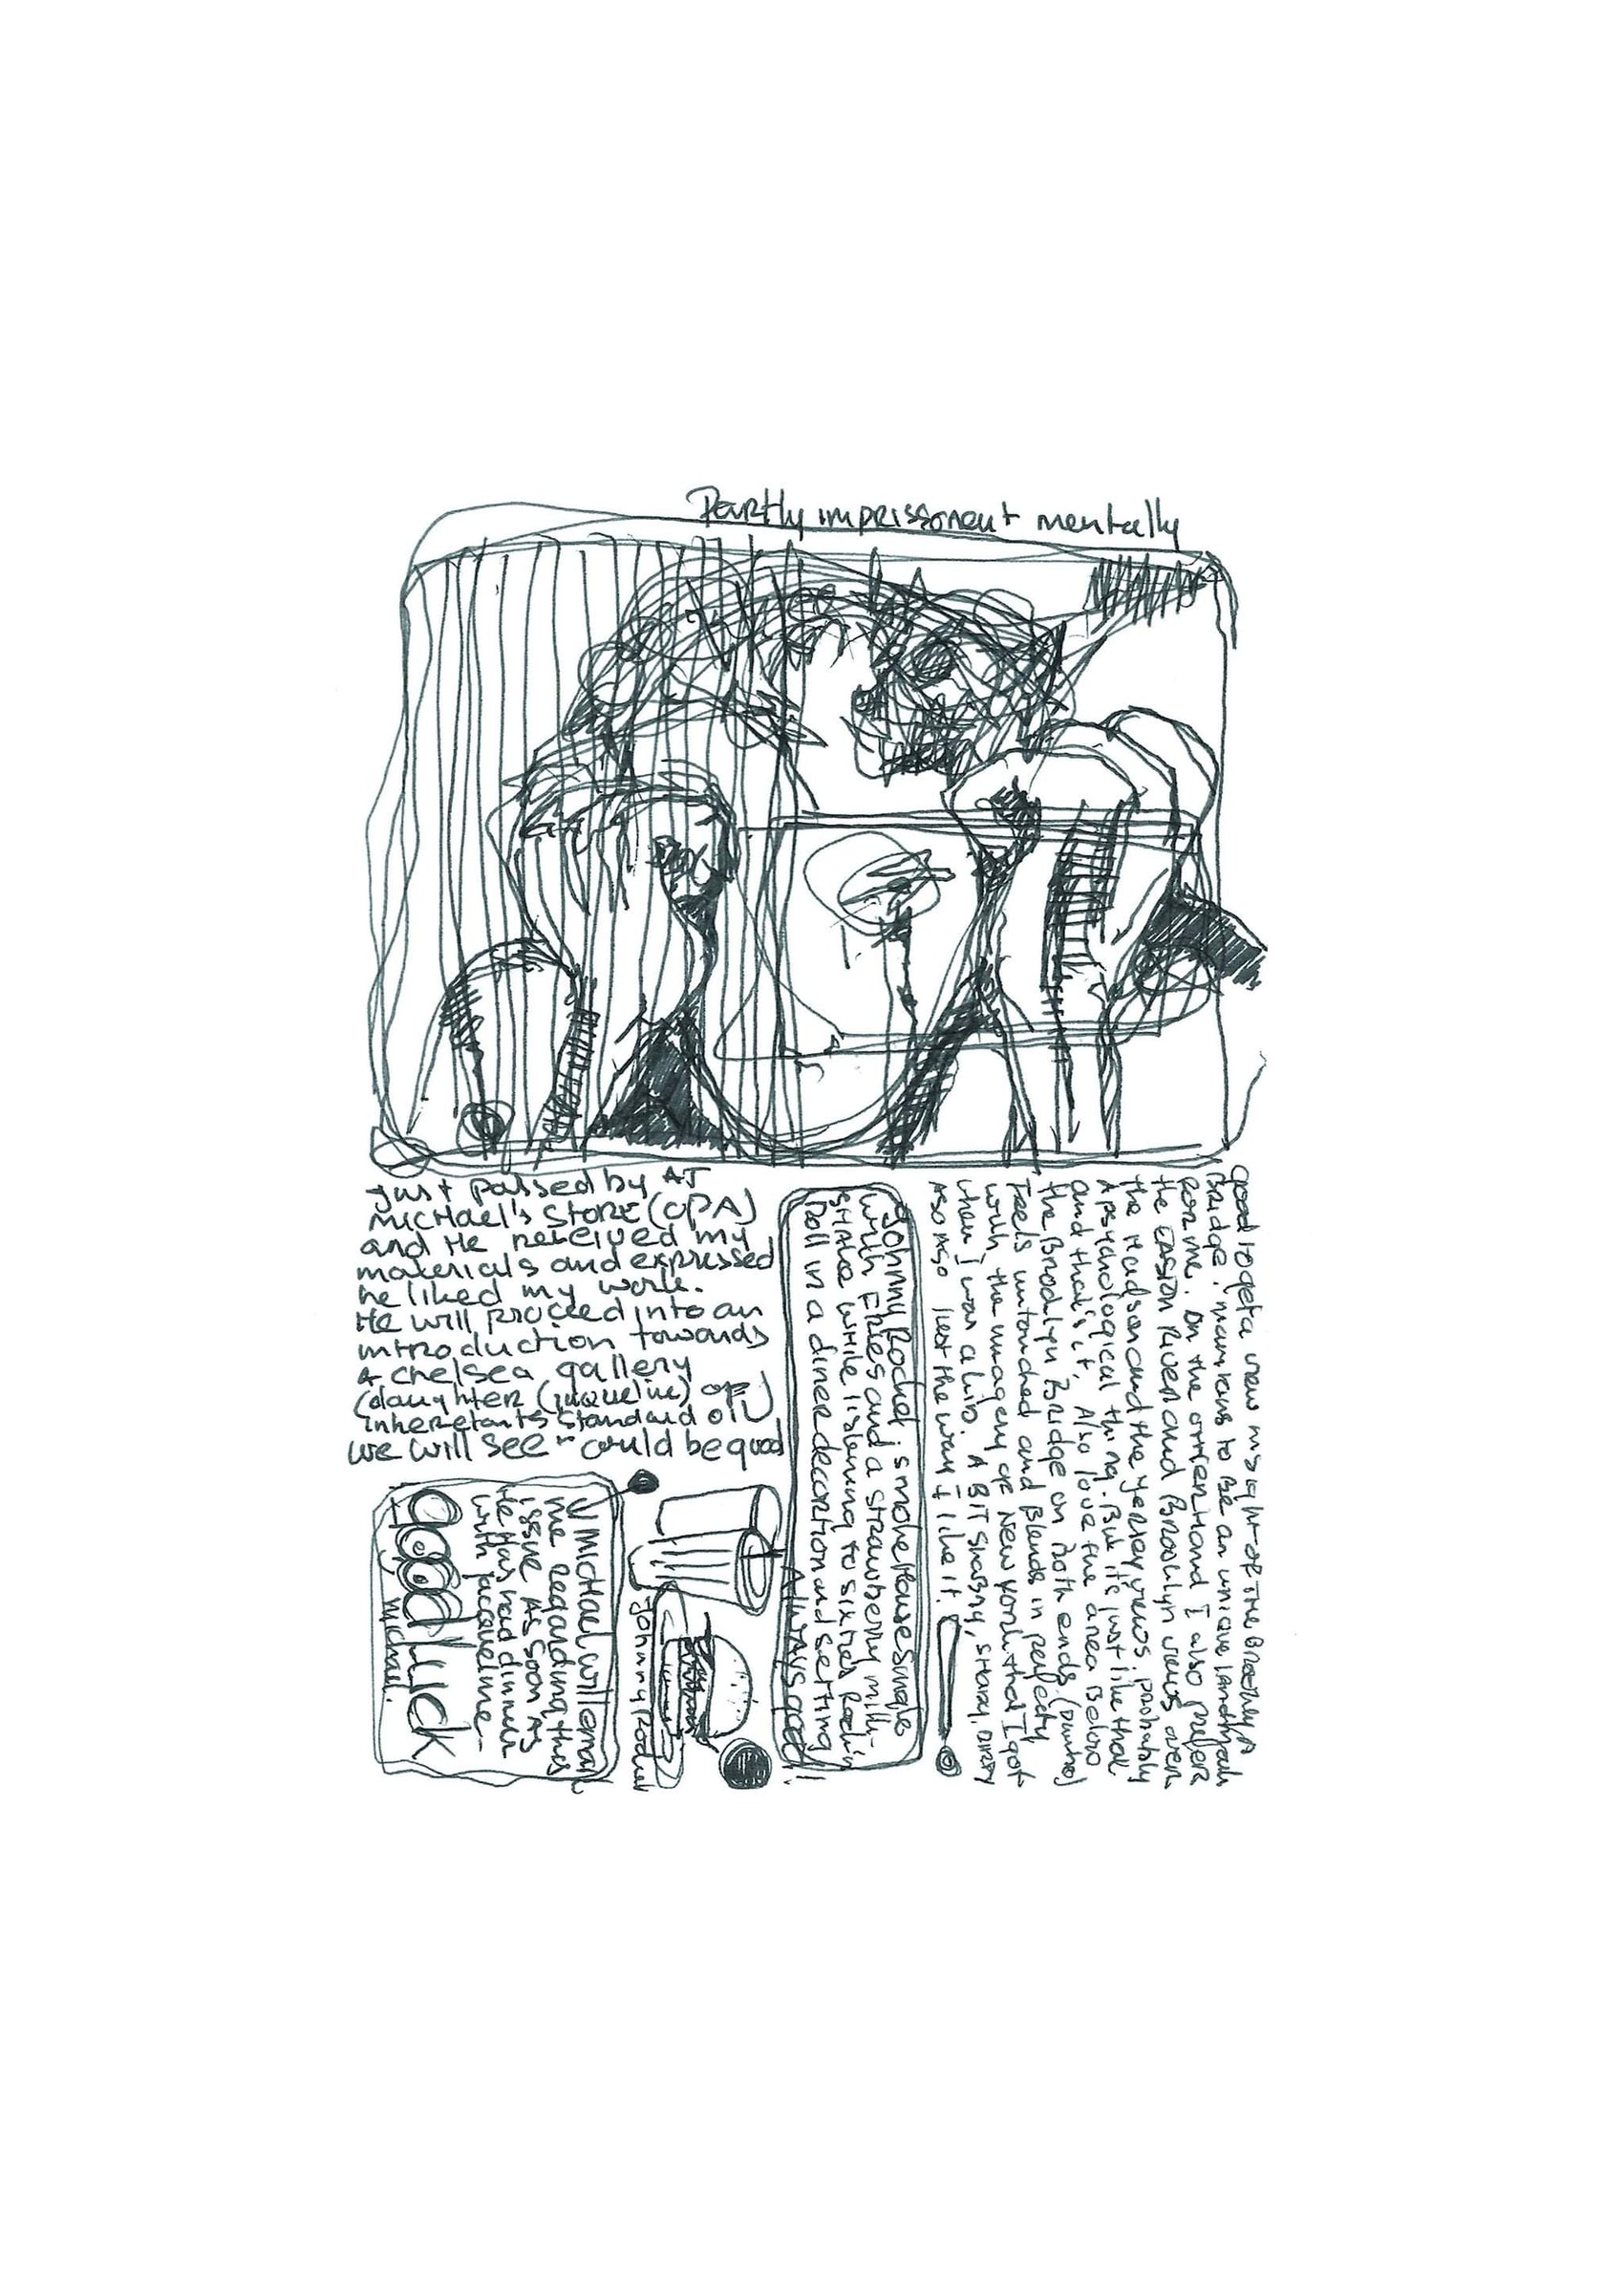 Partly imprissonent mentally
Just passed by AT
Michael's STORE (CPA)
and He received my
materials and expressed
he liked my work.
He will proceed into an
introduction towards
A chelsea gallery
(daughter (jaqueline) of
inheretants Standard oil)
we will see could be good
Michael will email
me regarding this
issue AS soon AS
He Has had dinner
with Jacqueline.
Good Luck
Michael.
Johnny Rocket
Johnny Rocket: smoke House single
with Fries and a strawberry milk-
SHAKE while listening to sixties Rock'n
Roll in a diner decoration and setting
Always good!
good to get a view insight of the
Bridge.
For me. On the other Hand I also prefer
the EASTON River and Brooklyn views over
the Hudson and the Yersey views. probably
A psychological thing. But it's just like that
and that is it. Also love the area Below
the Brooklyn Bridge on Both ends.
Feels untouched and Blends in perfectly
with the imagery of New York that I got
when I was a kid. A BIT Shabby, sHady, DIRTY
just the way I like it.